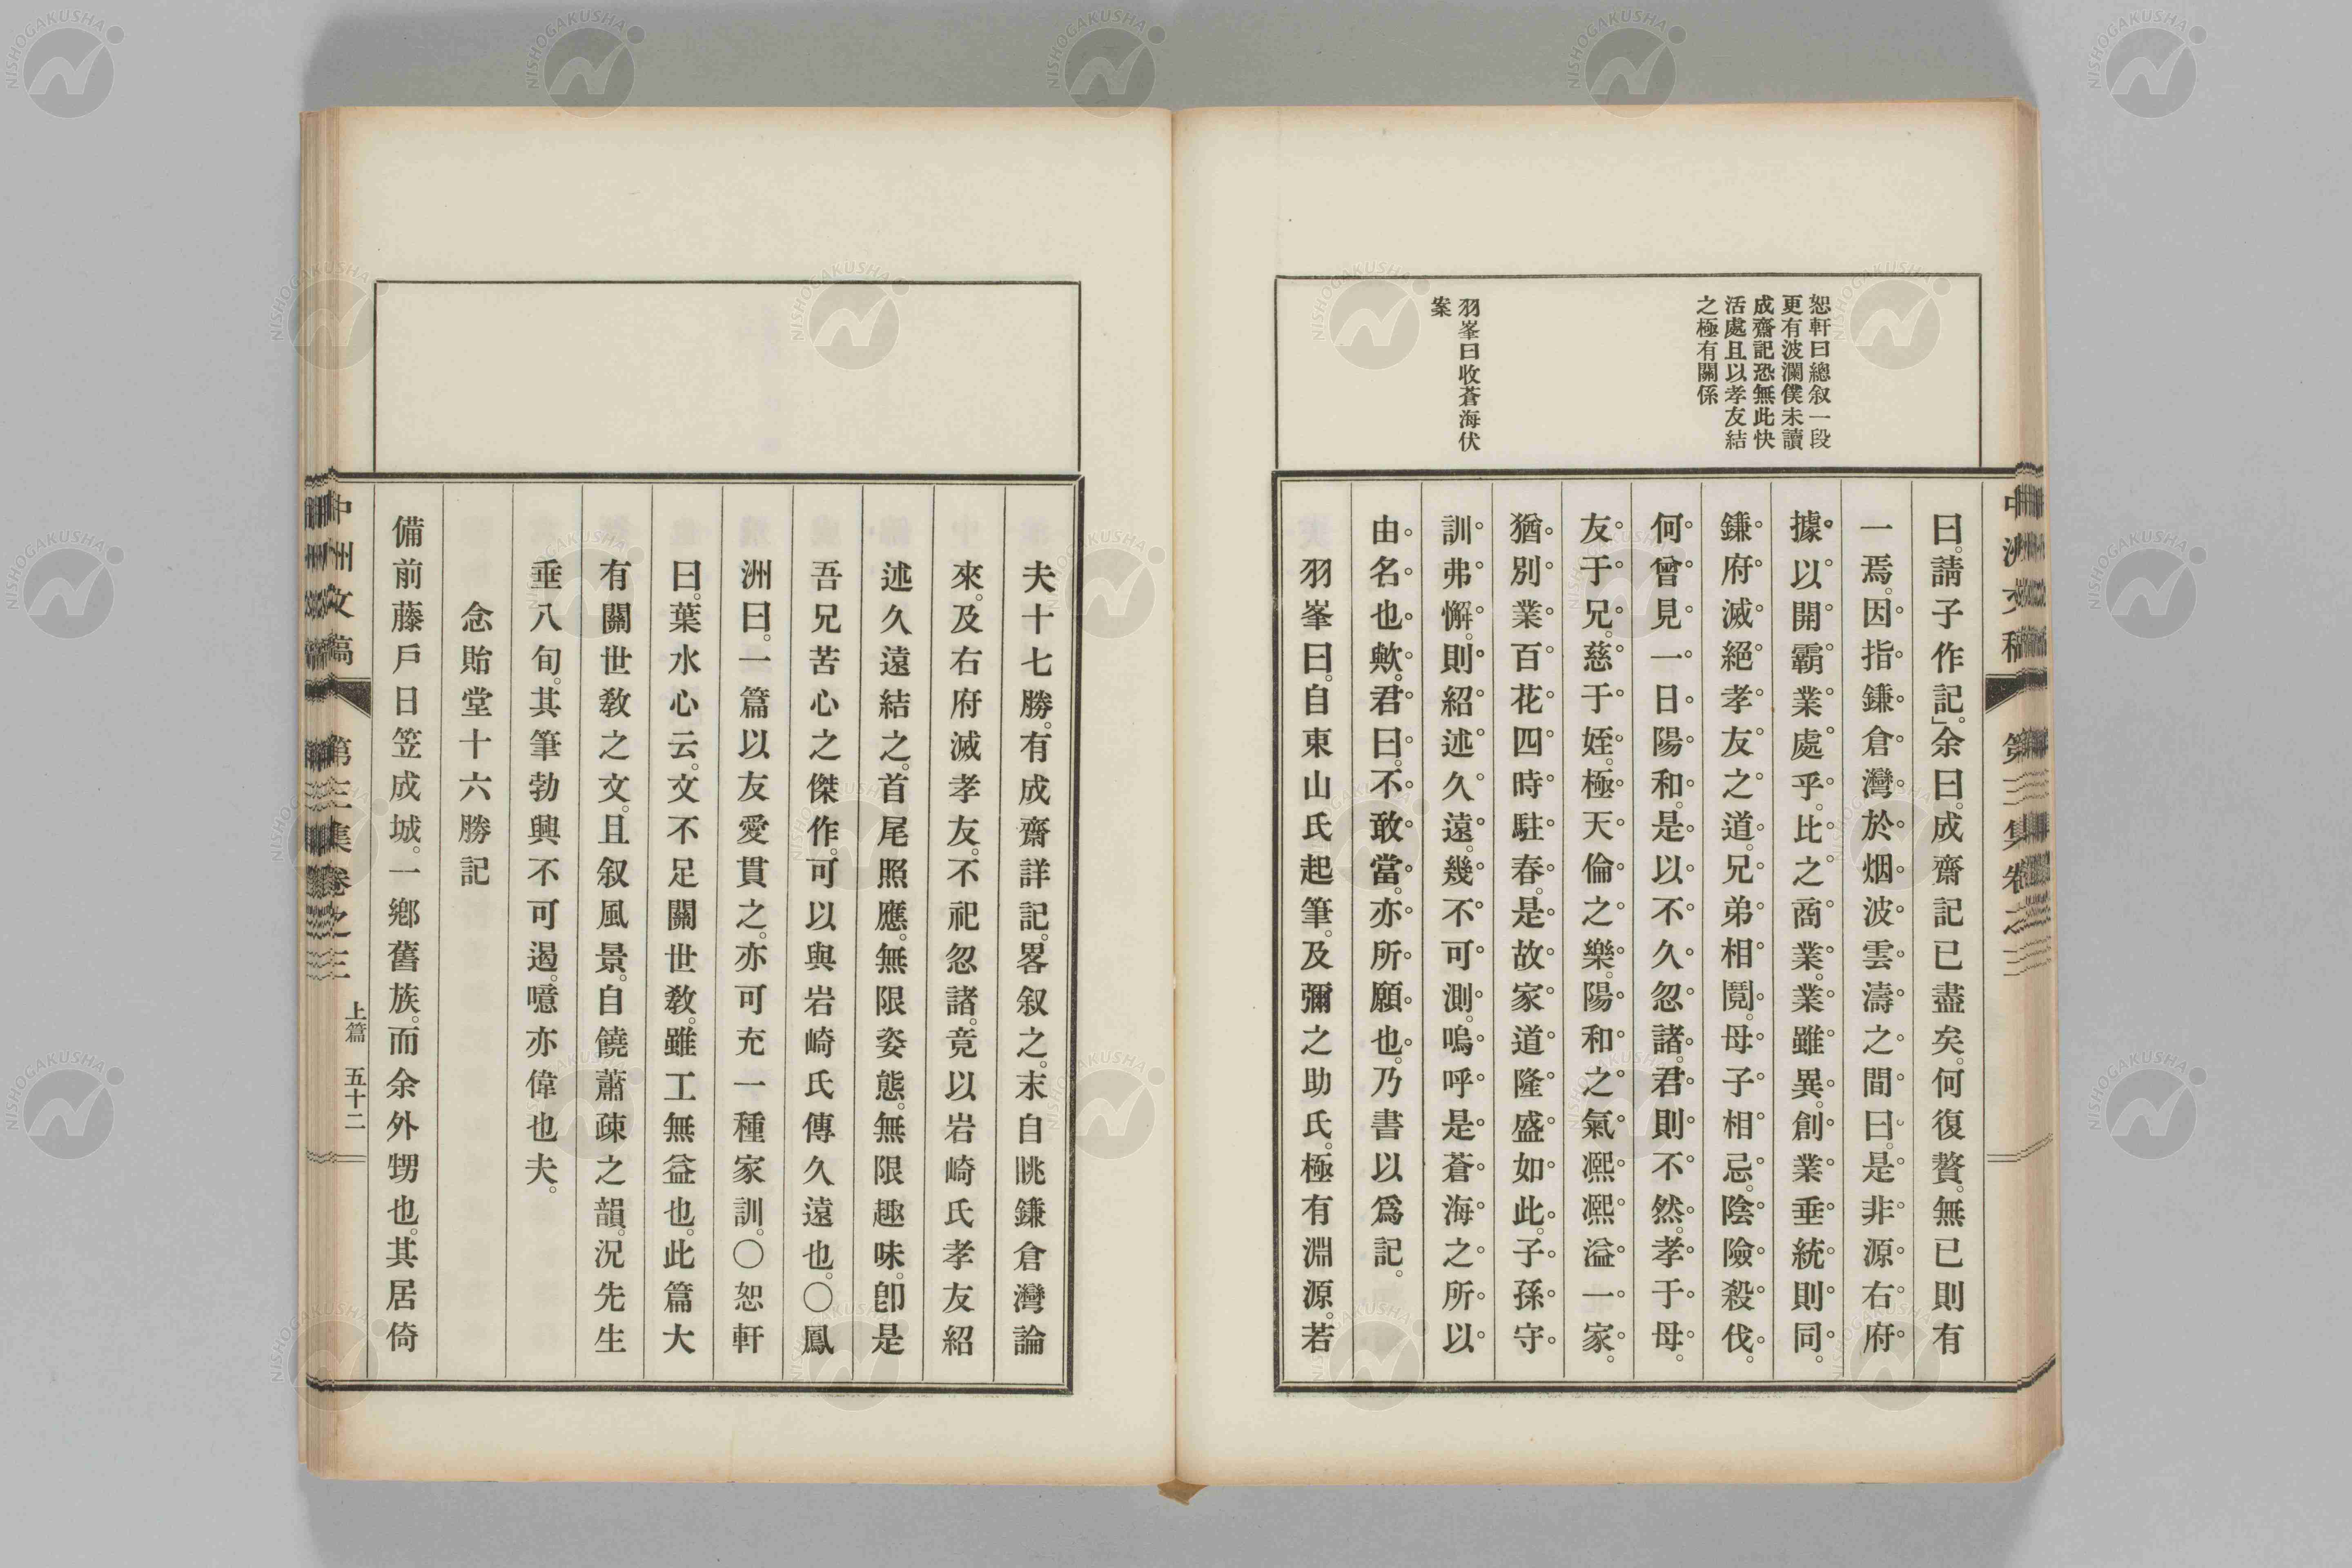 恕軒曰總叙一段
更有波瀾僕未讀
成齋記恐無此快
活處且以孝友結
之極有關係
羽峯曰收蒼海伏
案
曰。請子作記。」余曰。成齋記已盡矣。何復贅。無已則有
一焉。因指鎌倉灣於烟波雲濤之間曰。是非源右府
據以開霸業處乎。比之商業。業雖異。創業垂統則同。
鎌府滅絕孝友之道。兄弟相鬩。母子相忌。陰險殺伐。
何曾見一日陽和。是以不久忽諸。君則不然。孝于母。
友于兄。慈于姪。極天倫之樂。陽和之氣凞凞溢一家。
猶別業百花四時駐春。是故家道隆盛如此。子孫守
訓弗懈。則紹述久遠。幾不可測。嗚呼是蒼海之所以
由名也歟。君曰。不敢當。亦所願也。乃書以爲記。
羽峯曰。自東山氏起筆。及彌之助氏。極有淵源。若
夫十七勝。有成齋詳記。畧叙之。末自眺鎌倉灣論
來。及右府滅孝友。不祀忽諸。竟以岩崎氏孝友紹
述久遠結之。首尾照應。無限姿態。無限趣味。卽是
吾兄苦心之傑作。可以與岩崎氏傳久遠也。○鳳
洲曰。一篇以友愛貫之。亦可充一種家訓。○恕軒
曰。葉水心云。文不足關世敎。雖工無益也。此篇大
有關世敎之文。且叙風景。自饒蕭疎之韻。況先生
垂八旬。其筆勃興不可遏。噫亦偉也夫。
念貽堂十六勝記
備前藤戶日笠成城。一鄕舊族。而余外甥也。其居倚
中洲文稿
第三集卷之三
上篇
五十二
NISHOGAKUSHA